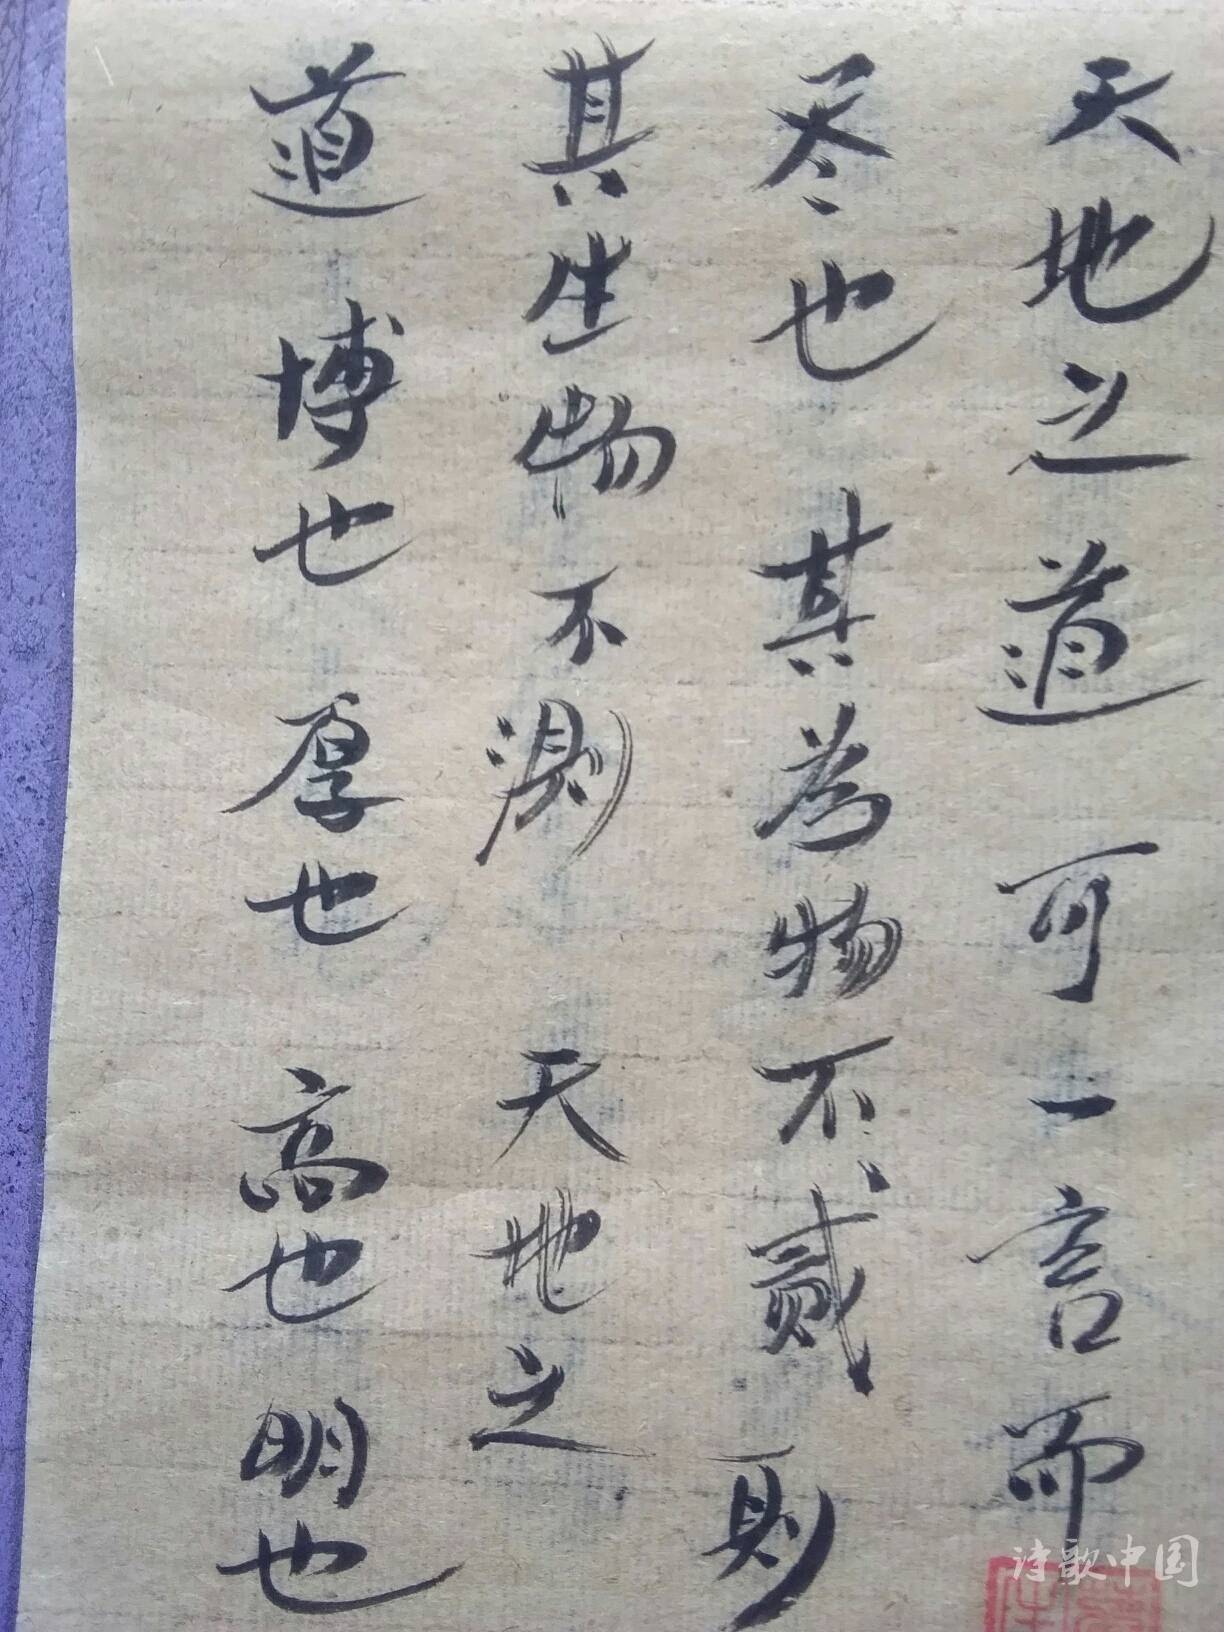 天地之道可一言而
尽也其为物不贰则
其生物不测天地之
道博也厚也高也明也
诗歌中国